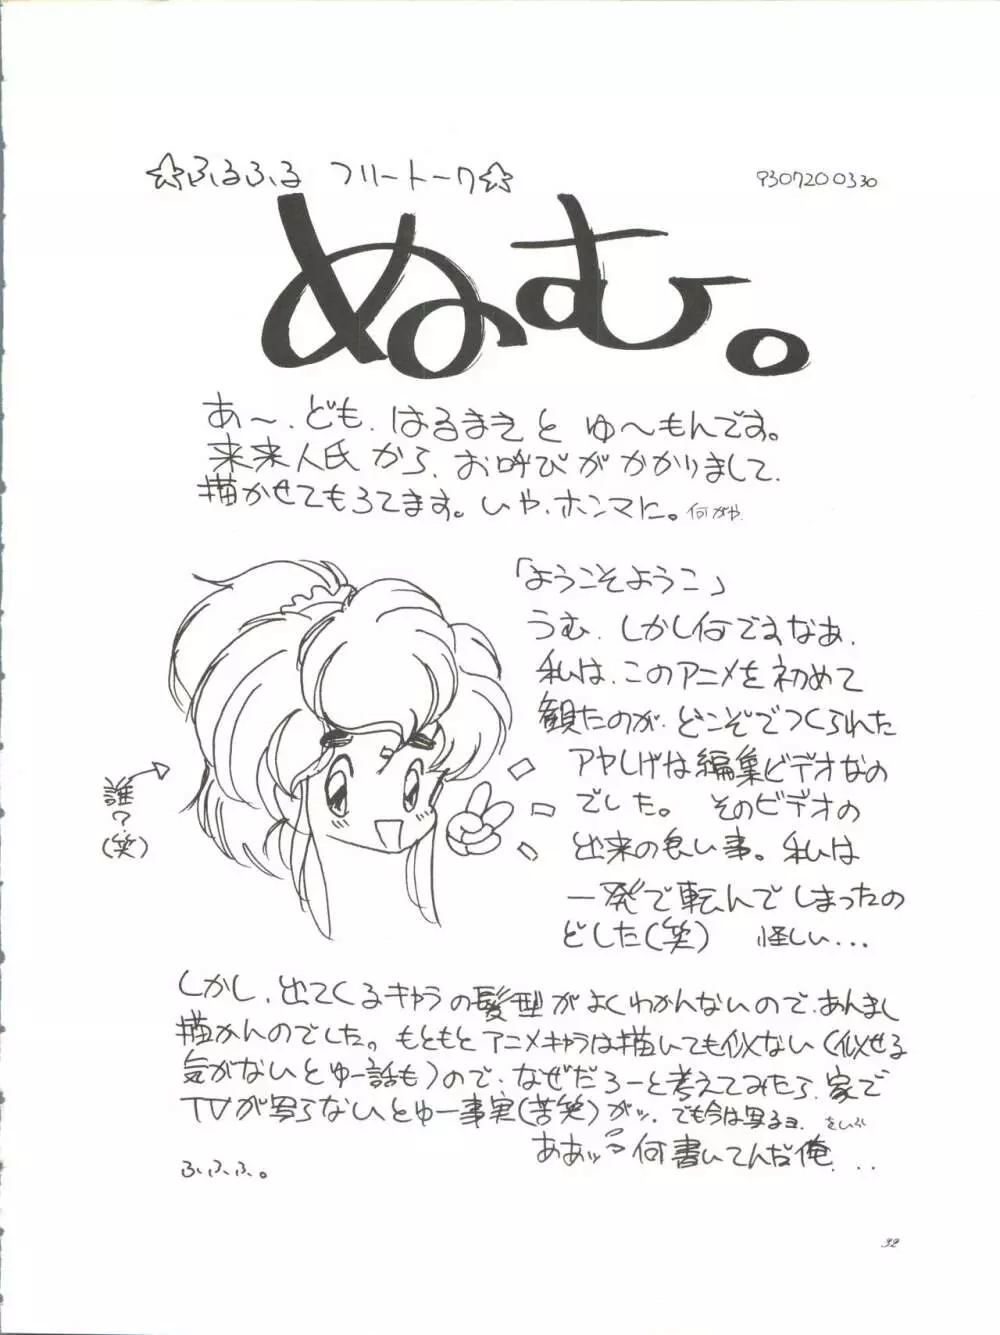 ☆ふるふる フリートーク☆
930720 0330
ぬむ。
あ〜、ども、はるまきと ゆ〜もんです。
来来人氏から、お呼びがかかりまして、
描かせてもろてます。いや、ホンマに。何がや
「ようこそようこ」
うむ、しかし何ですなあ、
私は、このアニメを初めて
観たのが、どこぞでつくられた
アヤしげな編集ビデオなの
でした。 そのビデオの
出来の良い事。私は
一発で転んでしまったの
どした(笑) 怪しい...
誰?
(笑)
しかし、出てくるキャラの髪型がよくわかんないので、あんまし
描かんのでした。もともとアニメキャラは描いても似ない(似せる
気がないとゆー話も)ので、なぜだろーと考えてみたら、家で
TVが写らないとゆー事実(苦笑)がッ、でも今は写るョ、をいぶ
ああッ 何書いてんだ俺...
ふ、ふ、ふ。
32